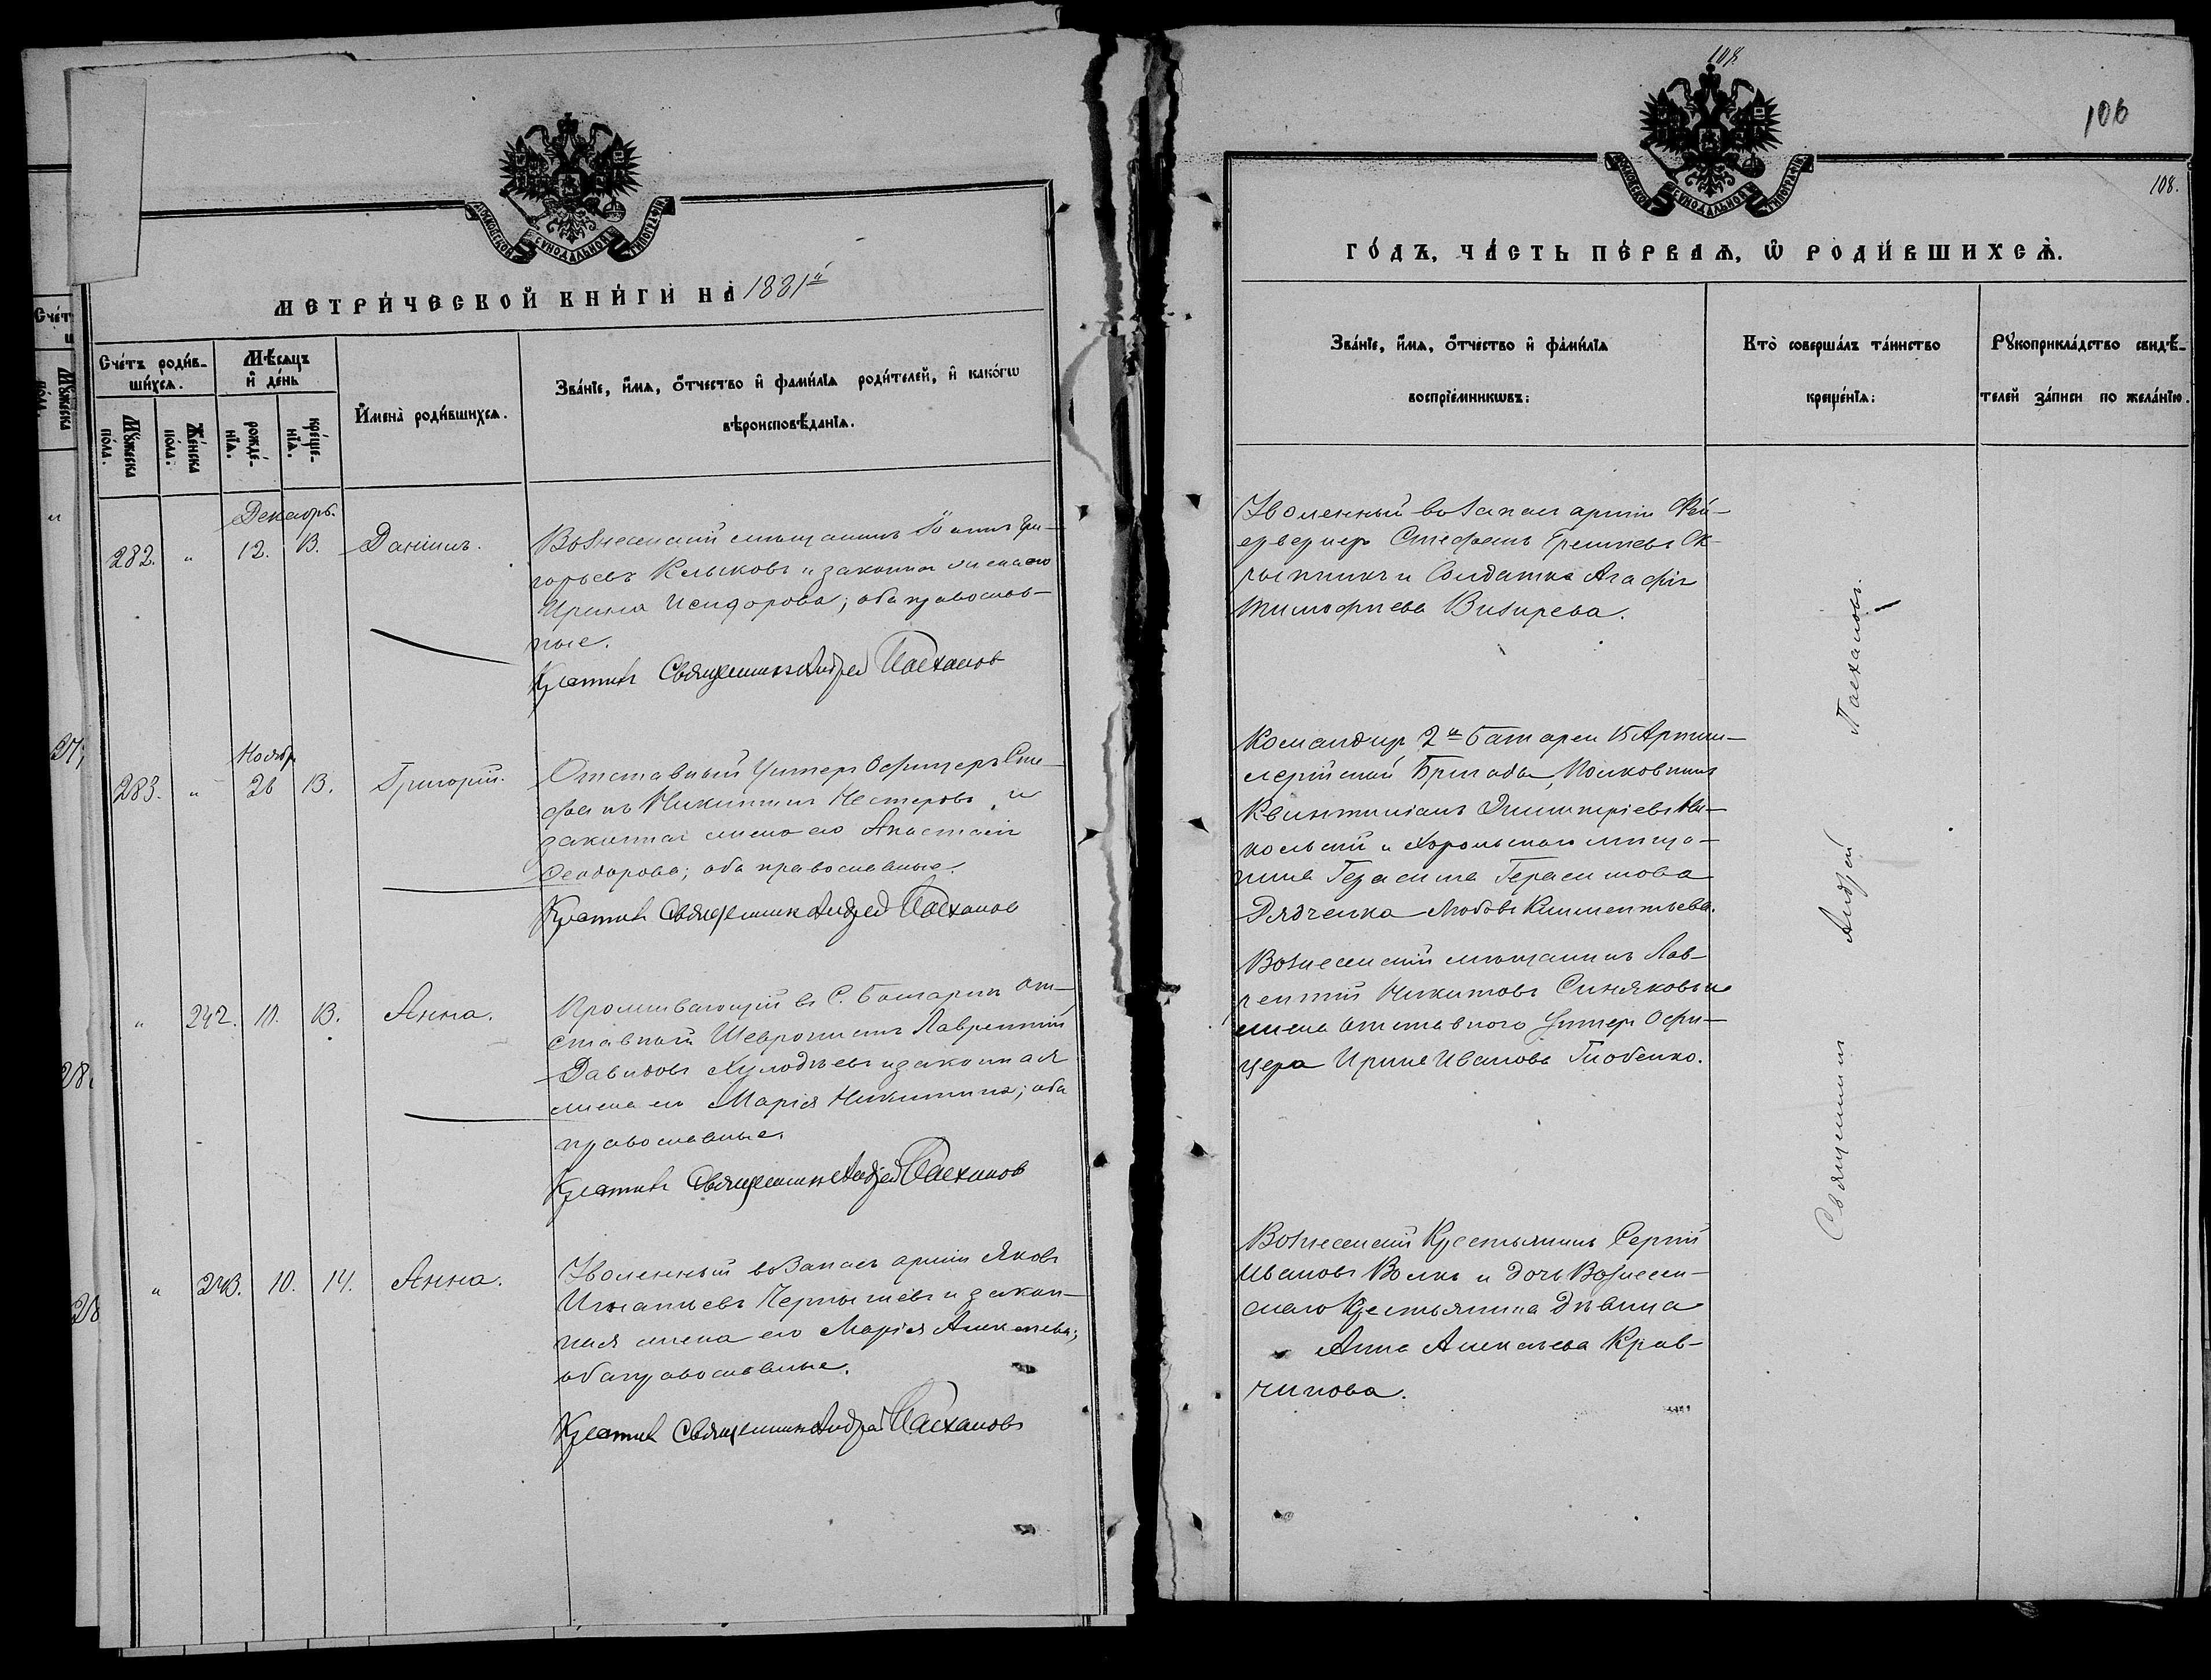 МЕТРИЧЕСКОЙ КНИГИ НА 1881й
Счетъ родившихся.
Мужеска пола.
Женска пола.
Мѣсяцъ и день
рожденія.
крещенія.
Имена родившихся.
Званіе, имя, отчество и фамилія родителей, и какогѡ
вѣроисповѣданія.
Декабрь.
282. " 12. 13. Даніилъ.
Вознесенскій мѣщанинъ Гри-
горьевъ и законная жена его
Ирина Исидорова; оба православ-
ные.
Крестилъ Священникъ Андрей Пасхаловъ
Ноябр.
283. " 26 13. Григорій.
Отставный Унтеръ Офицеръ Сте-
фанъ Никитинъ Нестеровъ и
законная жена его Анастасія
Ѳеодорова; оба православные.
Крестилъ Священникъ Андрей Пасхаловъ
" 242. 11. 13. Анна.
Проживающій въ С. Болгаркѣ от-
ставный Лаврентій
Давидовъ и законная
жена его Марія Никитина; оба
православные.
Крестилъ Священникъ Андрей Пасхаловъ
" 243. 10. 14. Анна.
Уволенный въ Запасъ арміи Яковъ
Игнатьевъ и закон-
ная жена его Марія Алексѣева;
оба православные.
Крестилъ Священникъ Андрей Пасхаловъ
108.
106
108.
ГОДЪ, ЧАСТЬ ПЕРВАЯ, Ѡ РОДИВШИХСЯ.
Званіе, имя, отчество и фамилія
воспріемниковъ:
Кто совершалъ таинство
крещенія:
Рукоприкладство свидѣ-
телей записи по желанію.
Уволенный въ запасъ арміи Фей-
ерверкеръ Стефанъ
и Солдатка Агафія
Тимофѣева Визирева.
Командиръ 2й Батареи 15 Артил-
лерійской Бригады, Полковникъ
Квинтиліанъ Димитріевъ Ни-
кольскій и Хорольскаго мѣща-
нина Герасима Герасимова
Дядченка Любовь Климентьева.
Вознесенскій мѣщанинъ Лав-
рентій Никитовъ Синяковъ и
жена отставного Унтеръ Офи-
цера Ирина Иванова Глобенко.
Вознесенскій Крестьянинъ Сергій
Ивановъ Волкъ и дочь Вознесен-
скаго Крестьянина Дѣвица
Анна Алексѣева Крав-
чинова.
Священникъ Андрей Пасхаловъ.